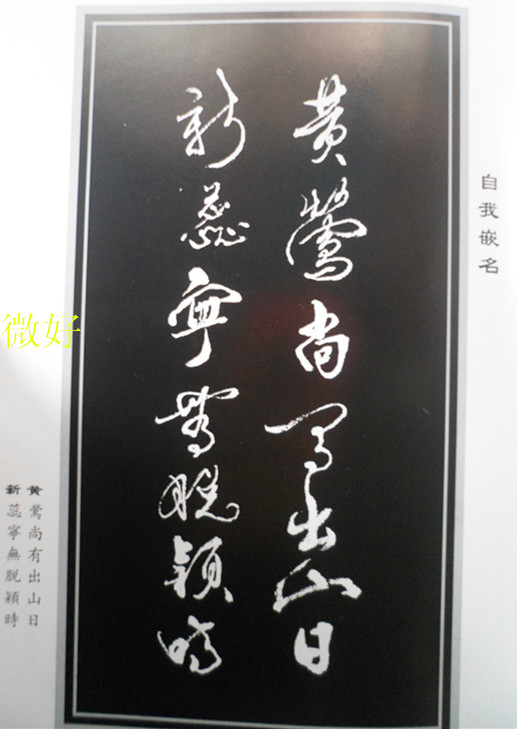 自我嵌名
黄鶯尚有出山日
新蕊寧無脱穎時
黄鶯尚有出山日
新蕊寧無脱穎時
微好